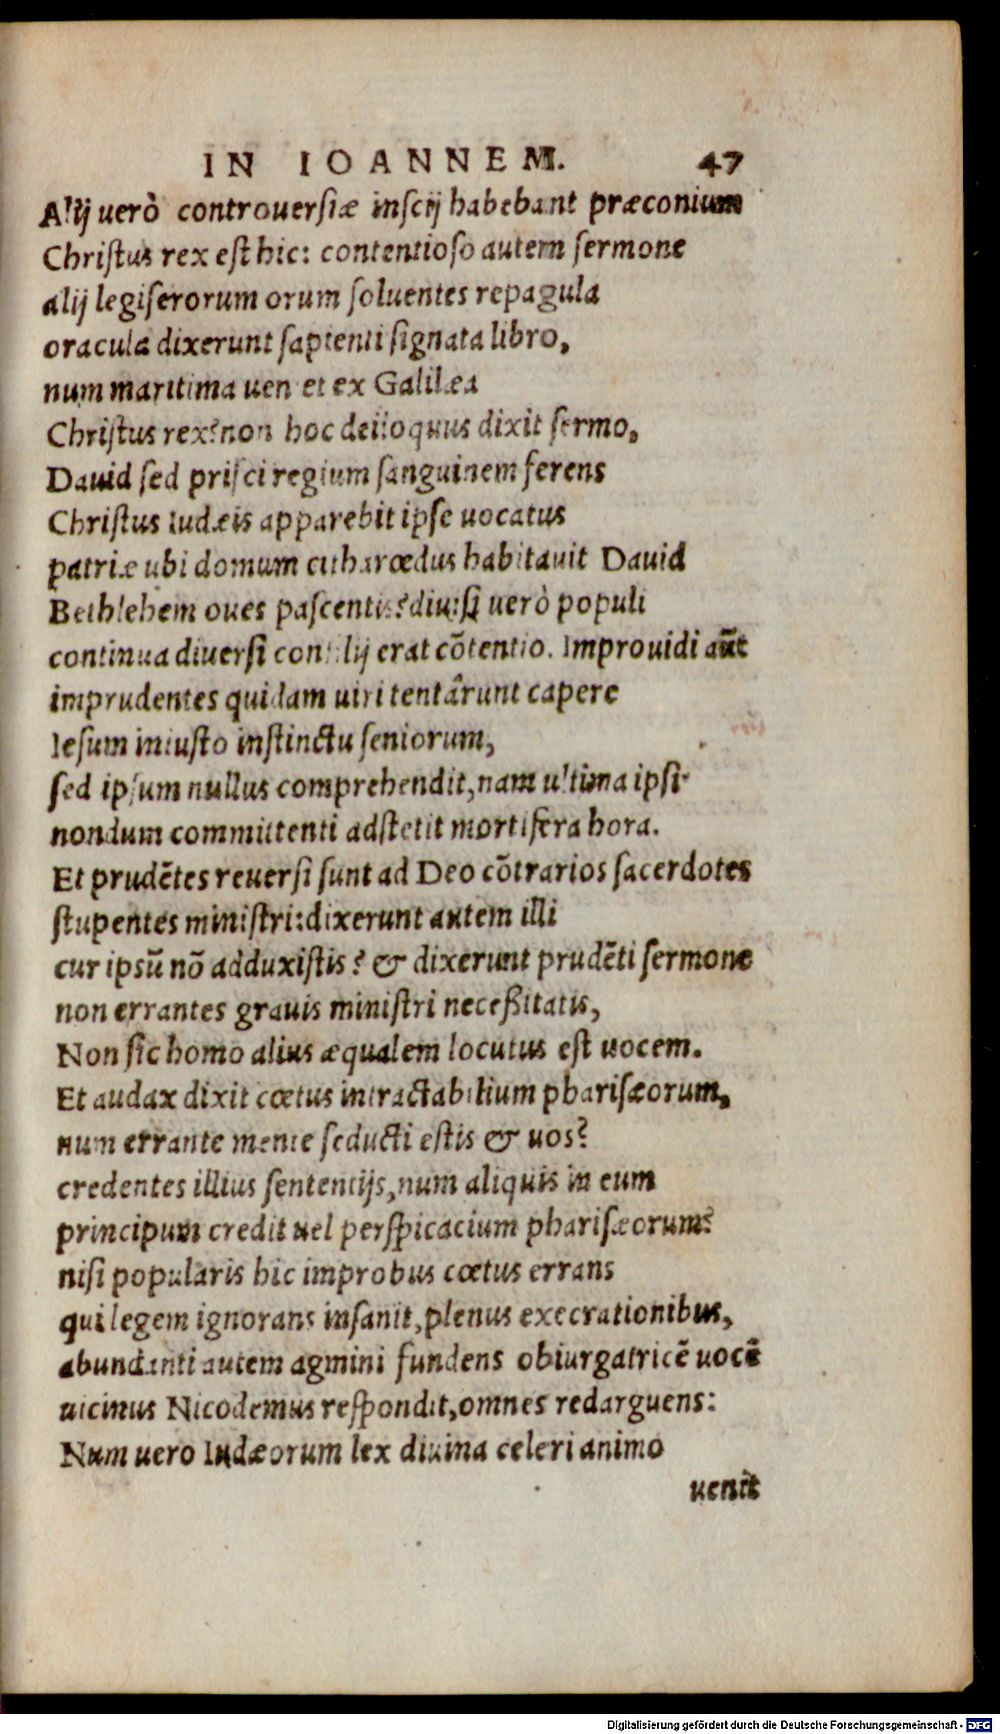 IN IOANNEM. 47
Alij uerò controuersiæ inscij habebant præconium
Christus rex est hic: contentioso autem sermone
alij legiferorum orum soluentes repagula
oracula dixerunt sapienti signata libro,
num maritima uenit et ex Galilæa
Christus rex? non hoc deiloquus dixit sermo,
Dauid sed prisci regium sanguinem ferens
Christus Iudæis apparebit ipse uocatus
patriæ ubi domum citharœdus habitauit Dauid
Bethlehem oues pascentis? diuisi uerò populi
continua diuersi consilij erat cōtentio. Improuidi aūt
imprudentes quidam uiri tentârunt capere
Iesum iniusto instinctu seniorum,
sed ipsum nullus comprehendit, nam ultima ipsi
nondum committenti adstetit mortifera hora.
Et prudētes reuersi sunt ad Deo cōtrarios sacerdotes
stupentes ministri: dixerunt autem illi
cur ipsū nō adduxistis? & dixerunt prudēti sermone
non errantes grauis ministri neceßitatis,
Non sic homo alius æqualem locutus est uocem.
Et audax dixit cœtus intractabilium pharisæorum,
num errante mente seducti estis & uos?
credentes illius sententijs, num aliquis in eum
principum credit uel perspicacium pharisæorum?
nisi popularis hic improbus cœtus errans
qui legem ignorans insanit, plenus execrationibus,
abundanti autem agmini fundens obiurgatricē uocē
uicinus Nicodemus respondit, omnes redarguens:
Num uero Iudæorum lex diuina celeri animo
uenit
Digitalisierung gefördert durch die Deutsche Forschungsgemeinschaft - DFG